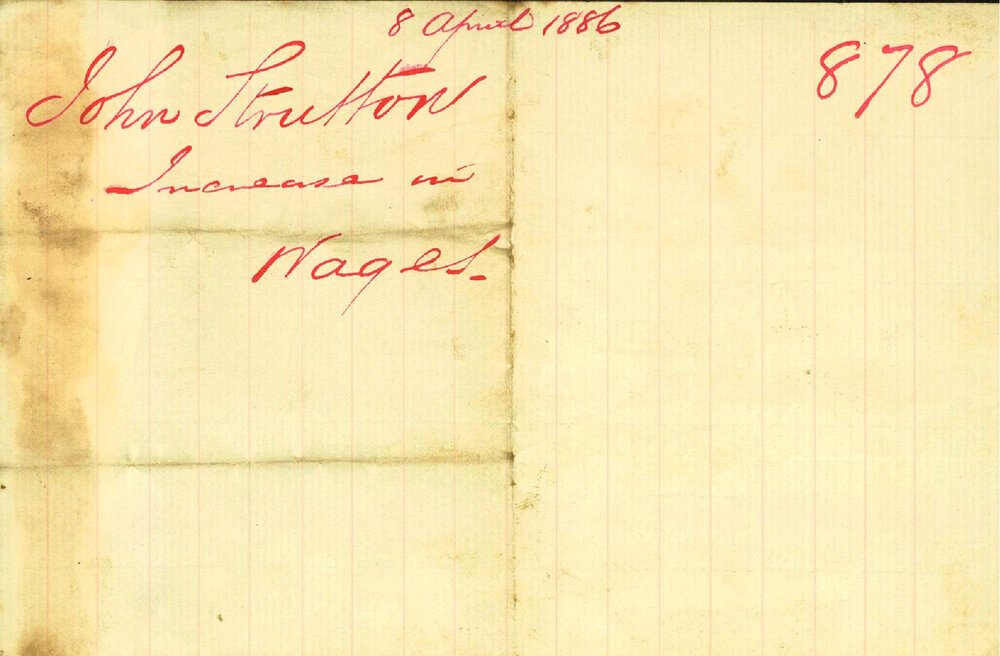 8 April 1886
878
John Strutton
Increase in
Wages.